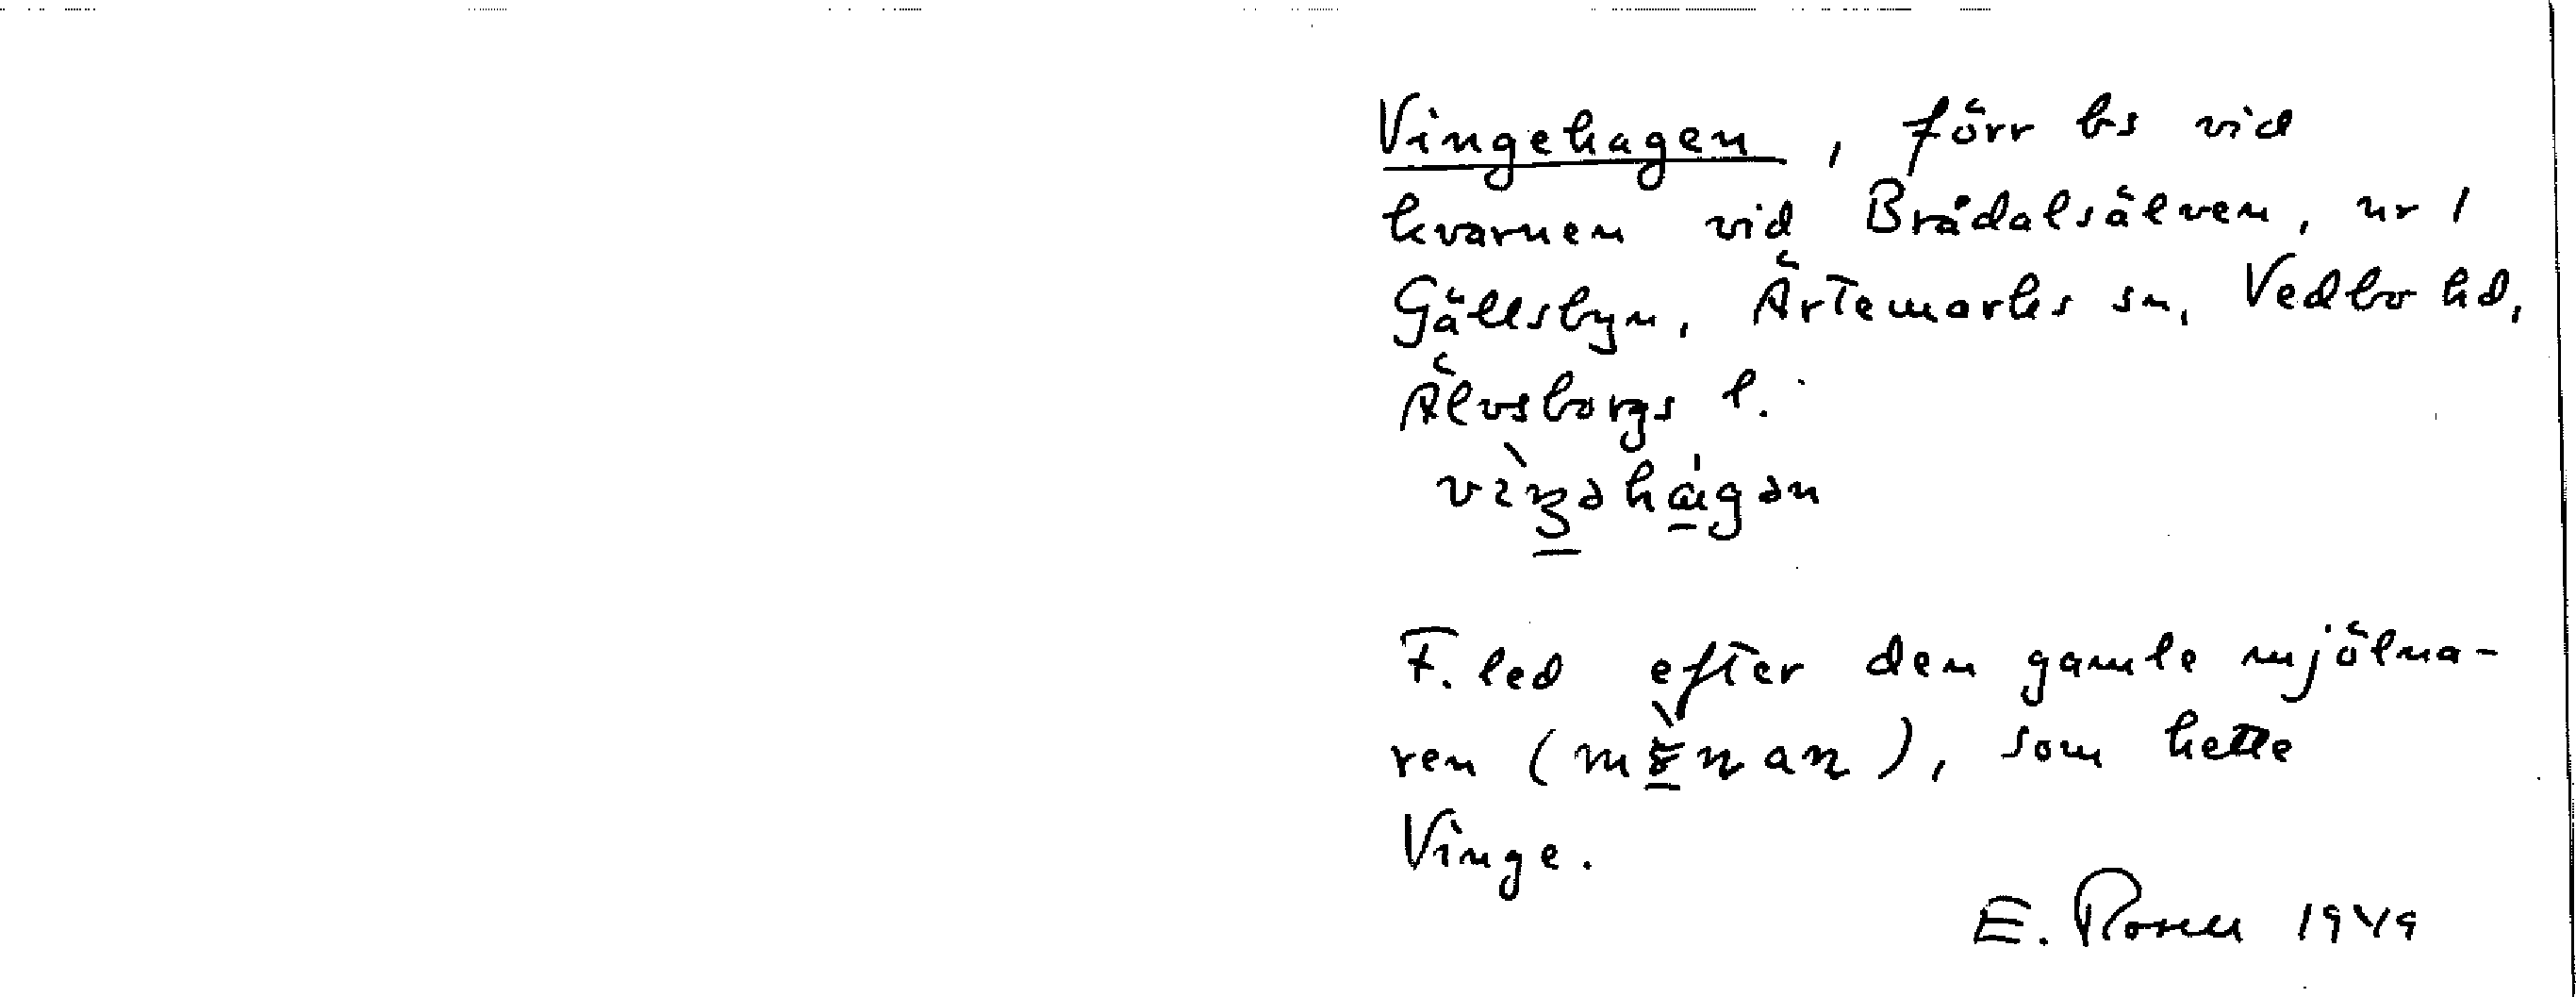 Vingehagen, förr bs vid
kvarnen vid Brådalsälven, nr 1
Gällsbyn, Ärtemarks sn, Vedbo hd,
Älvsborgs l.
F. led efter den gamle mjölna-
ren ( ), som hette
Vinge.
E. Rosell 1949